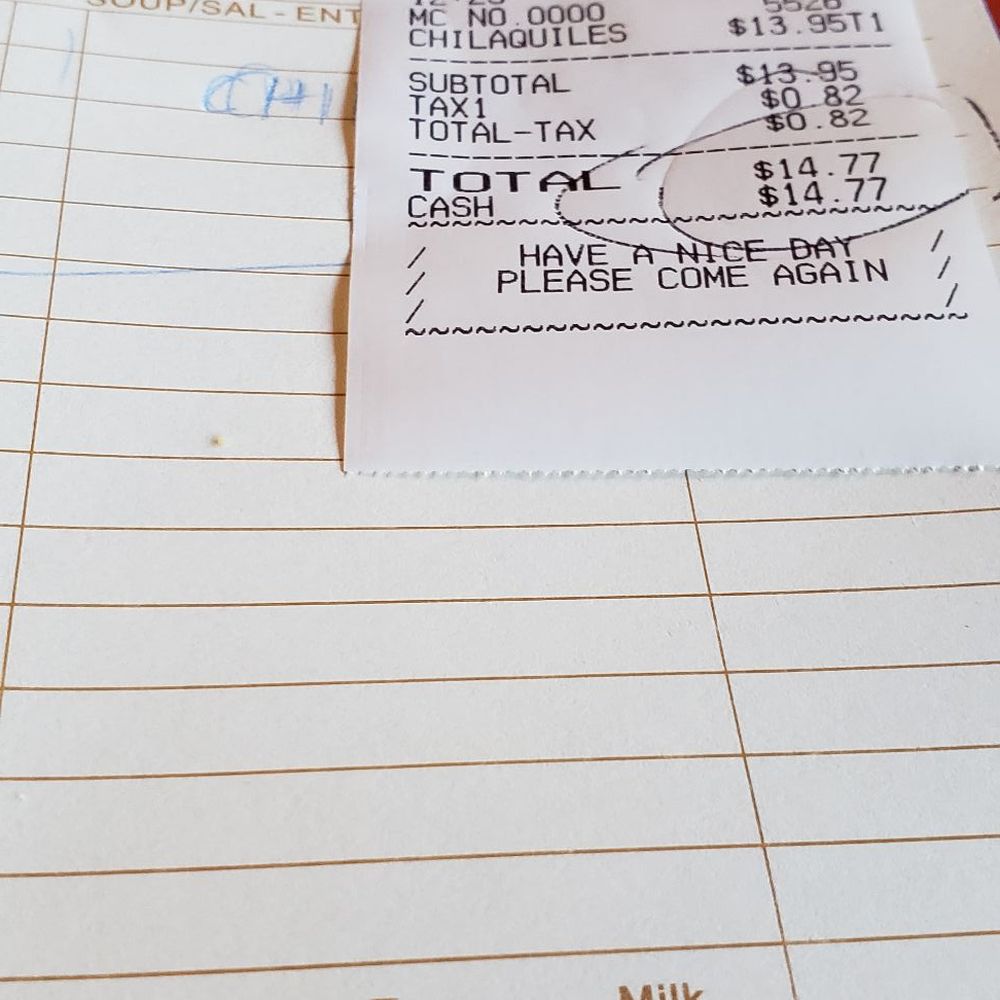 SOUP/SAL - ENT
CHI
MC NO.0000 5526
CHILAQUILES $13.95T1
SUBTOTAL $13.95
TAX1 $0.82
TOTAL-TAX $0.82
TOTAL $14.77
CASH $14.77
HAVE A NICE DAY
PLEASE COME AGAIN
Milk